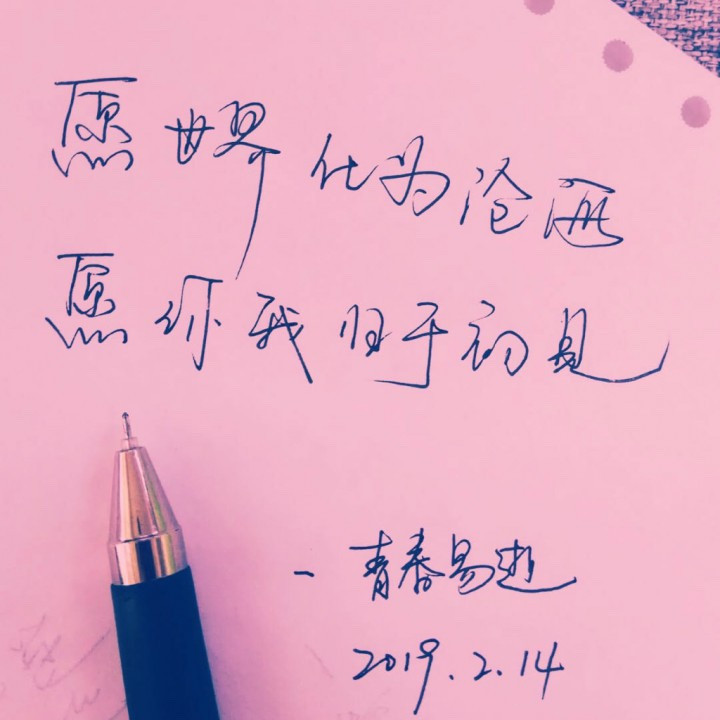 愿世界化为沧海
愿你我归于初见
- 青春易逝
2019.2.14